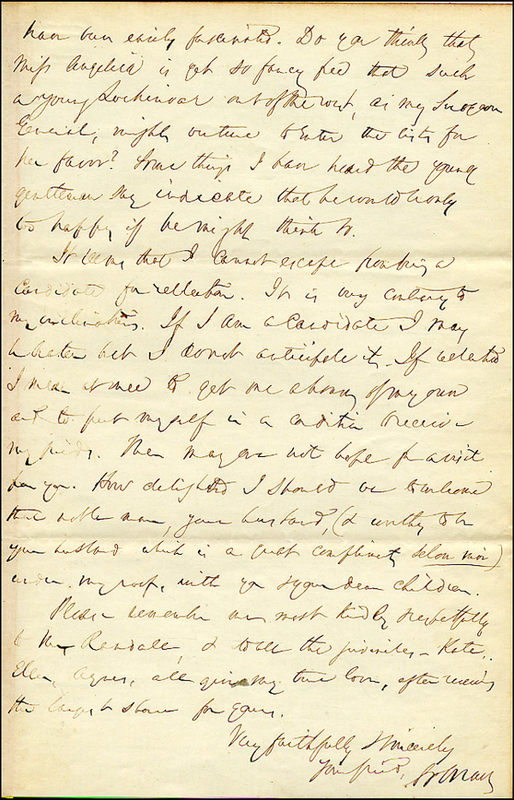 have been easily fascinated. Do you think that
Miss Angelia is yet so fancy free that such
a young Lochinvar out of the west, as my Surgeon
General, might venture to enter the lists for
her favor? Some things I have heard the young
gentleman say indicate that he would be only
too happy if he might think so.
It seems that I cannot escape being a
candidate for reelection. It is very contrary to
my inclinations. If I am a candidate I may
be beaten but I do not anticipate it. If elected
I mean at once to get me a house of my own
and to put myself in a condition to receive
my friends. Then may we not hope for a visit
from you. How delighted I should be to welcome
that noble man, your husband, (& worthy to be
your husband which is a great compliment selon moi)
under my roof, with you & your dear children.
Please remember me most kindly & respectfully
to Mr Rendall, & to all the juveniles – Kate,
Ellen, Agnes, all give my true love, after receiving
the largest share for yours.
Very faithfully & sincerely
Your friend,